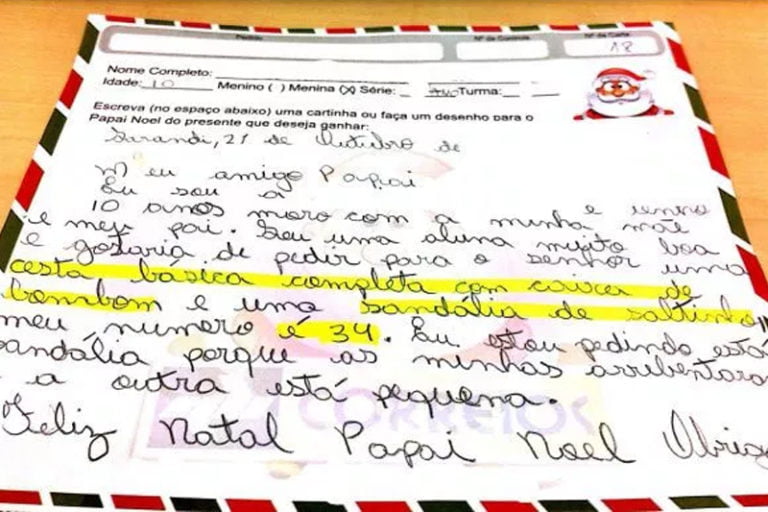 Nº da Carta
18
Nome Completo:
Idade: 10 Menino ( ) Menina (x) Série: Turma:
Escreva (no espaço abaixo) uma cartinha ou faça um desenho para o
Papai Noel do presente que deseja ganhar:
Sarandi, 21 de Outubro de
Meu amigo Papai
Eu sou a
10 anos moro com a minha mãe
e meu pai. Sou uma aluna muito boa
e gostaria de pedir para o senhor uma
cesta básica completa com caixa de
bombom e uma sandália de saltinho
meu número é 34. Eu estou pedindo esta
sandália porque as minhas arrebentara
a outra está pequena.
Feliz Natal Papai Noel Obrig
CORREIOS